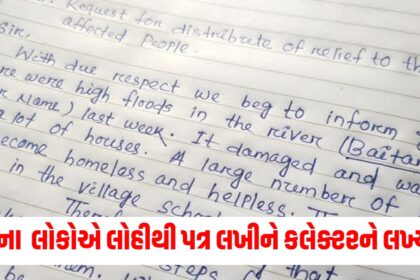 Request for distribute of relief to th
affected People.
Sir,
With due respect we beg to inform
re were high floods in the river (Baita
Name) last week. It damaged and wa
a lot of houses. A large number of
become homeless and helpless.
in the village school
ના લોકોએ લોહીથી પત્ર લખીને કલેક્ટરને લખ
steps
that